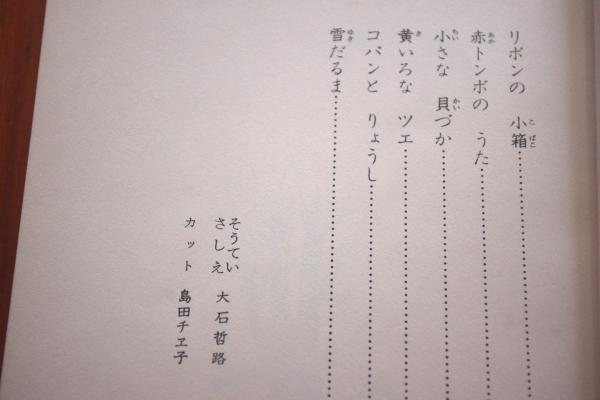 リボンの 小箱
赤トンボの うた
小さな 貝づか
黄いろな ツエ
コバンと りょうし
雪だるま
そうてい
さしえ 大石哲路
カット 島田チヱ子